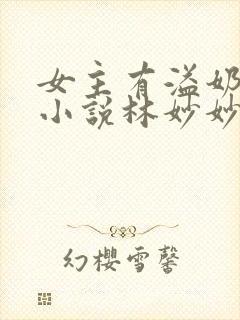 女主有溢奶
小说林妙妙
幻樱雪馨